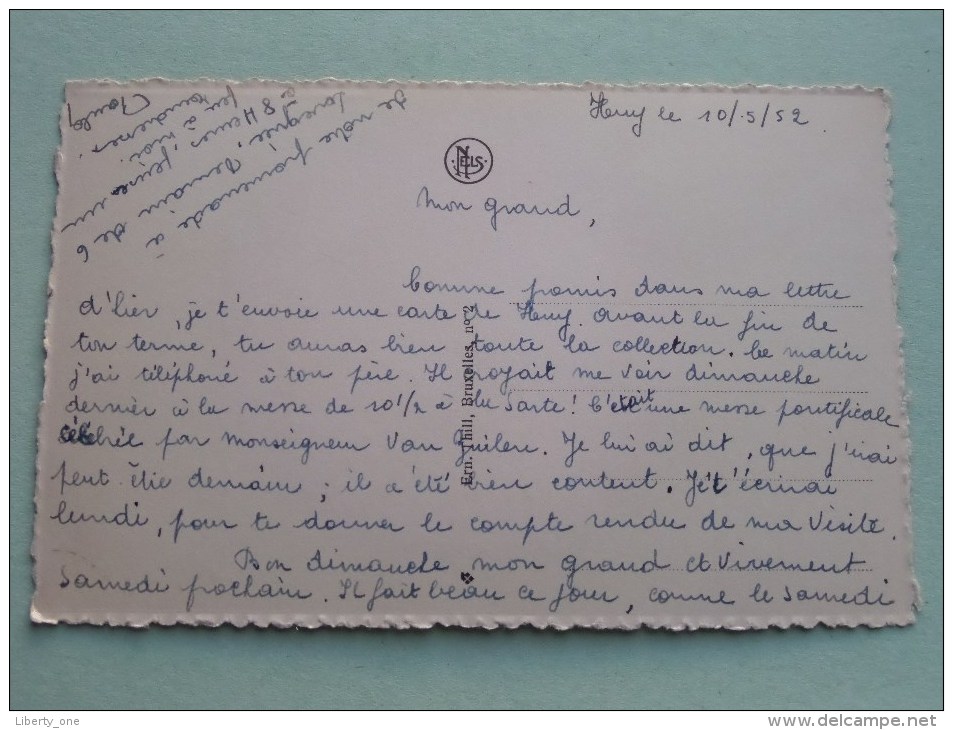 Huy le 10/5/52.
NELS
Mon grand,
Comme promis dans ma lettre
d'hier, je t'envoie une carte de Huy. Avant la fin de
ton terme, tu auras bien toute la collection. Ce matin
j'ai téléphoné à ton père. Il croyait me voir dimanche
dernier à la messe de 10 1/2 à la Sarte! C'était une messe pontificale
célébrée par Monseigneur Van Zuilen. Je lui ai dit, que j'irai
peut être demain; il a été bien content. Je t'écrirai
lundi, pour te donner le compte rendu de ma visite.
Bon dimanche mon grand et vivement
Samedi prochain. Il fait beau ce jour, comme le Samedi
de notre promenade à
Demain de 6
à 8 Heures
à moi.
Ern. Thill, Bruxelles, n° 2
Liberty_one
www.delcampe.net